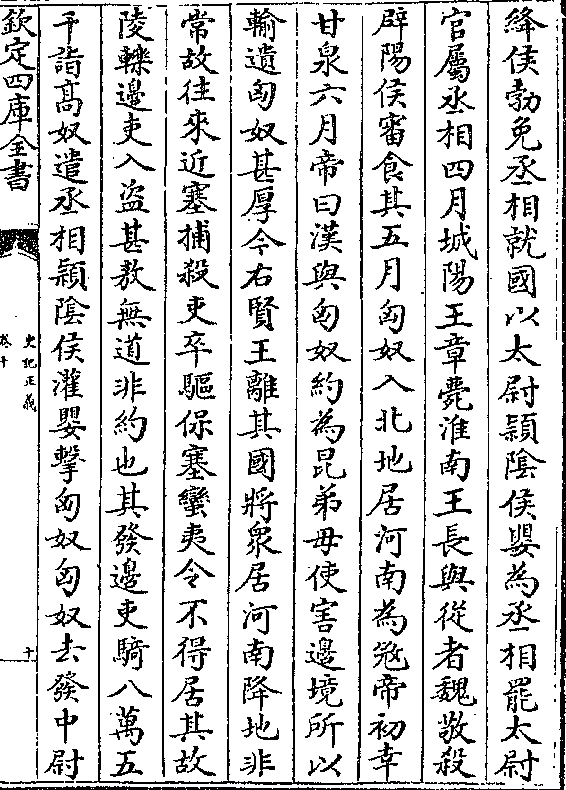 絳侯勃免丞相就國以太尉潁陰侯嬰為丞相罷太尉
官屬丞相四月城陽王章薨淮南王長與從者魏敬殺
辟陽侯審食其五月匈奴入北地居河南為㓂帝初幸
甘泉六月帝曰漢與匈奴約為昆弟毋使害邊境所以
輸遺匈奴甚厚今右賢王離其國將衆居河南降地非
常故往來近塞捕殺吏卒驅保塞蠻夷令不得居其故
陵轢邊吏入盜甚敖無道非約也其發邊吏騎八萬五
千詣髙奴遣丞相潁陰侯灌嬰擊匈奴匈奴去發中尉
欽定四庫全書
史記正義
卷十
十